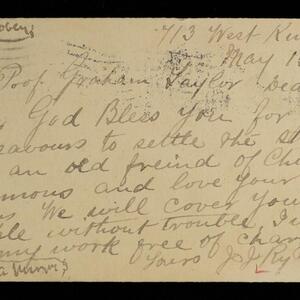 713 West
May 1
Prof. Graham Taylor Dea
God Bless You for
eavours to settle the st
an old freind of Chi
mous and love your
We will cover you
ble without trouble, I w
my work free of char
Yours J. J. Ky